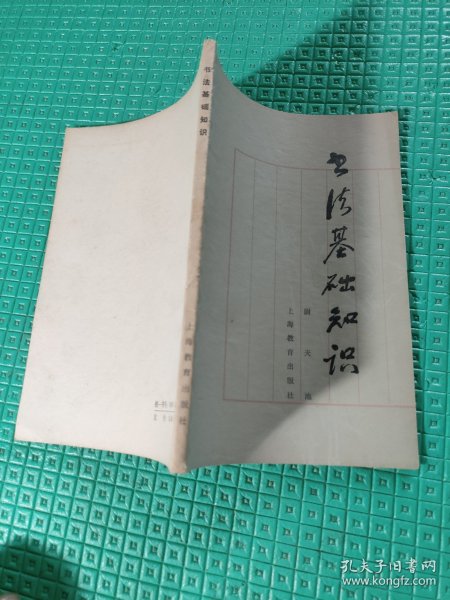 书法基础知识
尉天池
上海教育出版社
书法基础知识
上海教育出版社
孔夫子旧书网